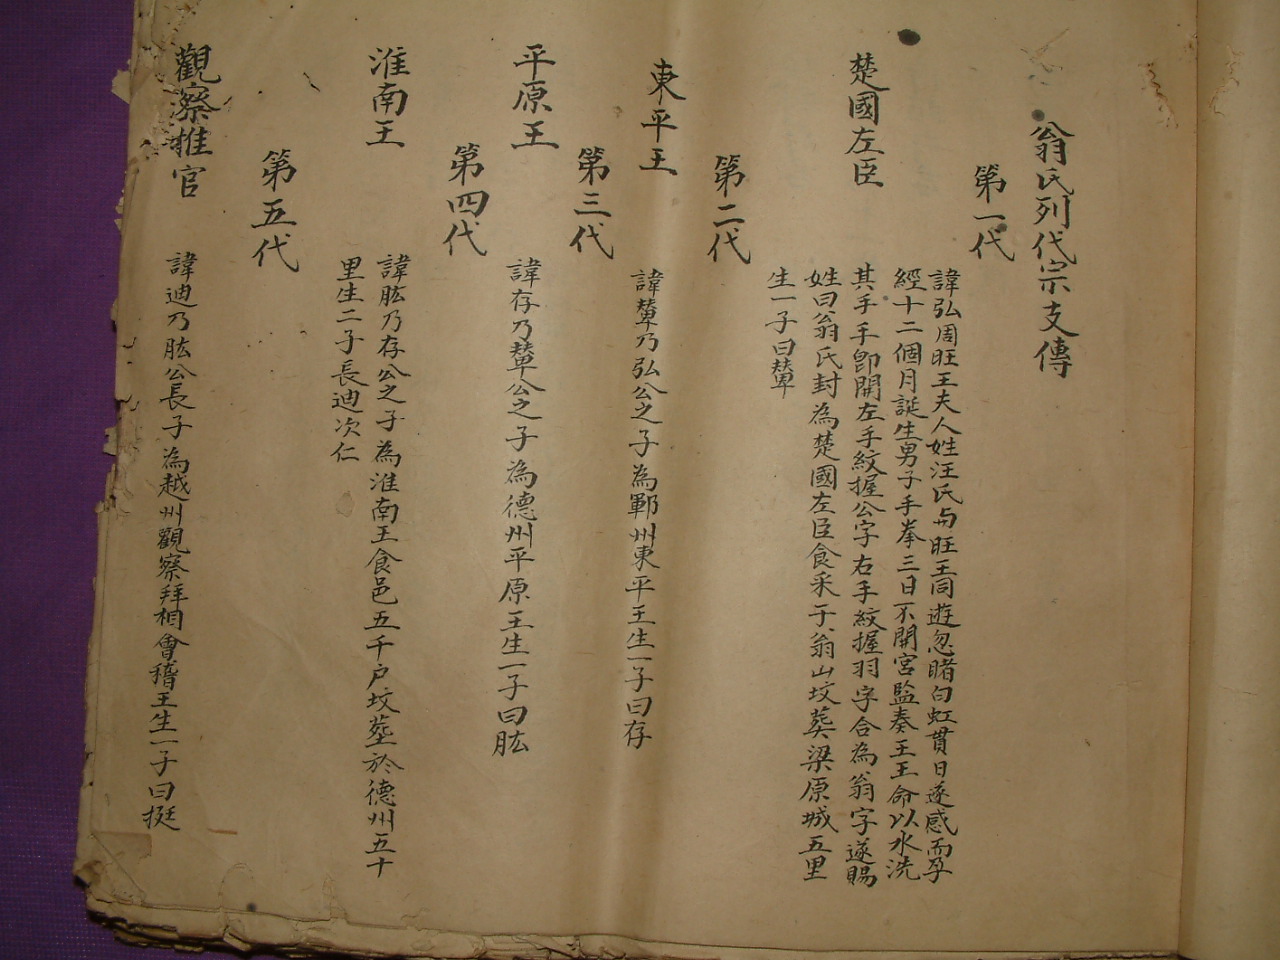 翁氏列代宗支傳
第一代
楚國左臣
諱弘周旺王夫人姓汪氏与旺王同遊忽睹白虹貫日遂感而孕
經十二個月誕生男子手拳三日不開宮監奏王王命以水洗
其手手卽開左手紋握公字右手紋握羽字合為翁字遂賜
姓曰翁氏封為楚國左臣食采于翁山坟葬梁原城五里
生一子曰輦
第二代
東平王
諱輦乃弘公之子為鄆州東平王生一子曰存
第三代
平原王
諱存乃輦公之子為德州平原王生一子曰肱
第四代
淮南王
諱肱乃存公之子為淮南王食邑五千户坟塟於德州五十
里生二子長迪次仁
第五代
觀察推官
諱迪乃肱公長子為越州觀察拜相會稽王生一子曰挺